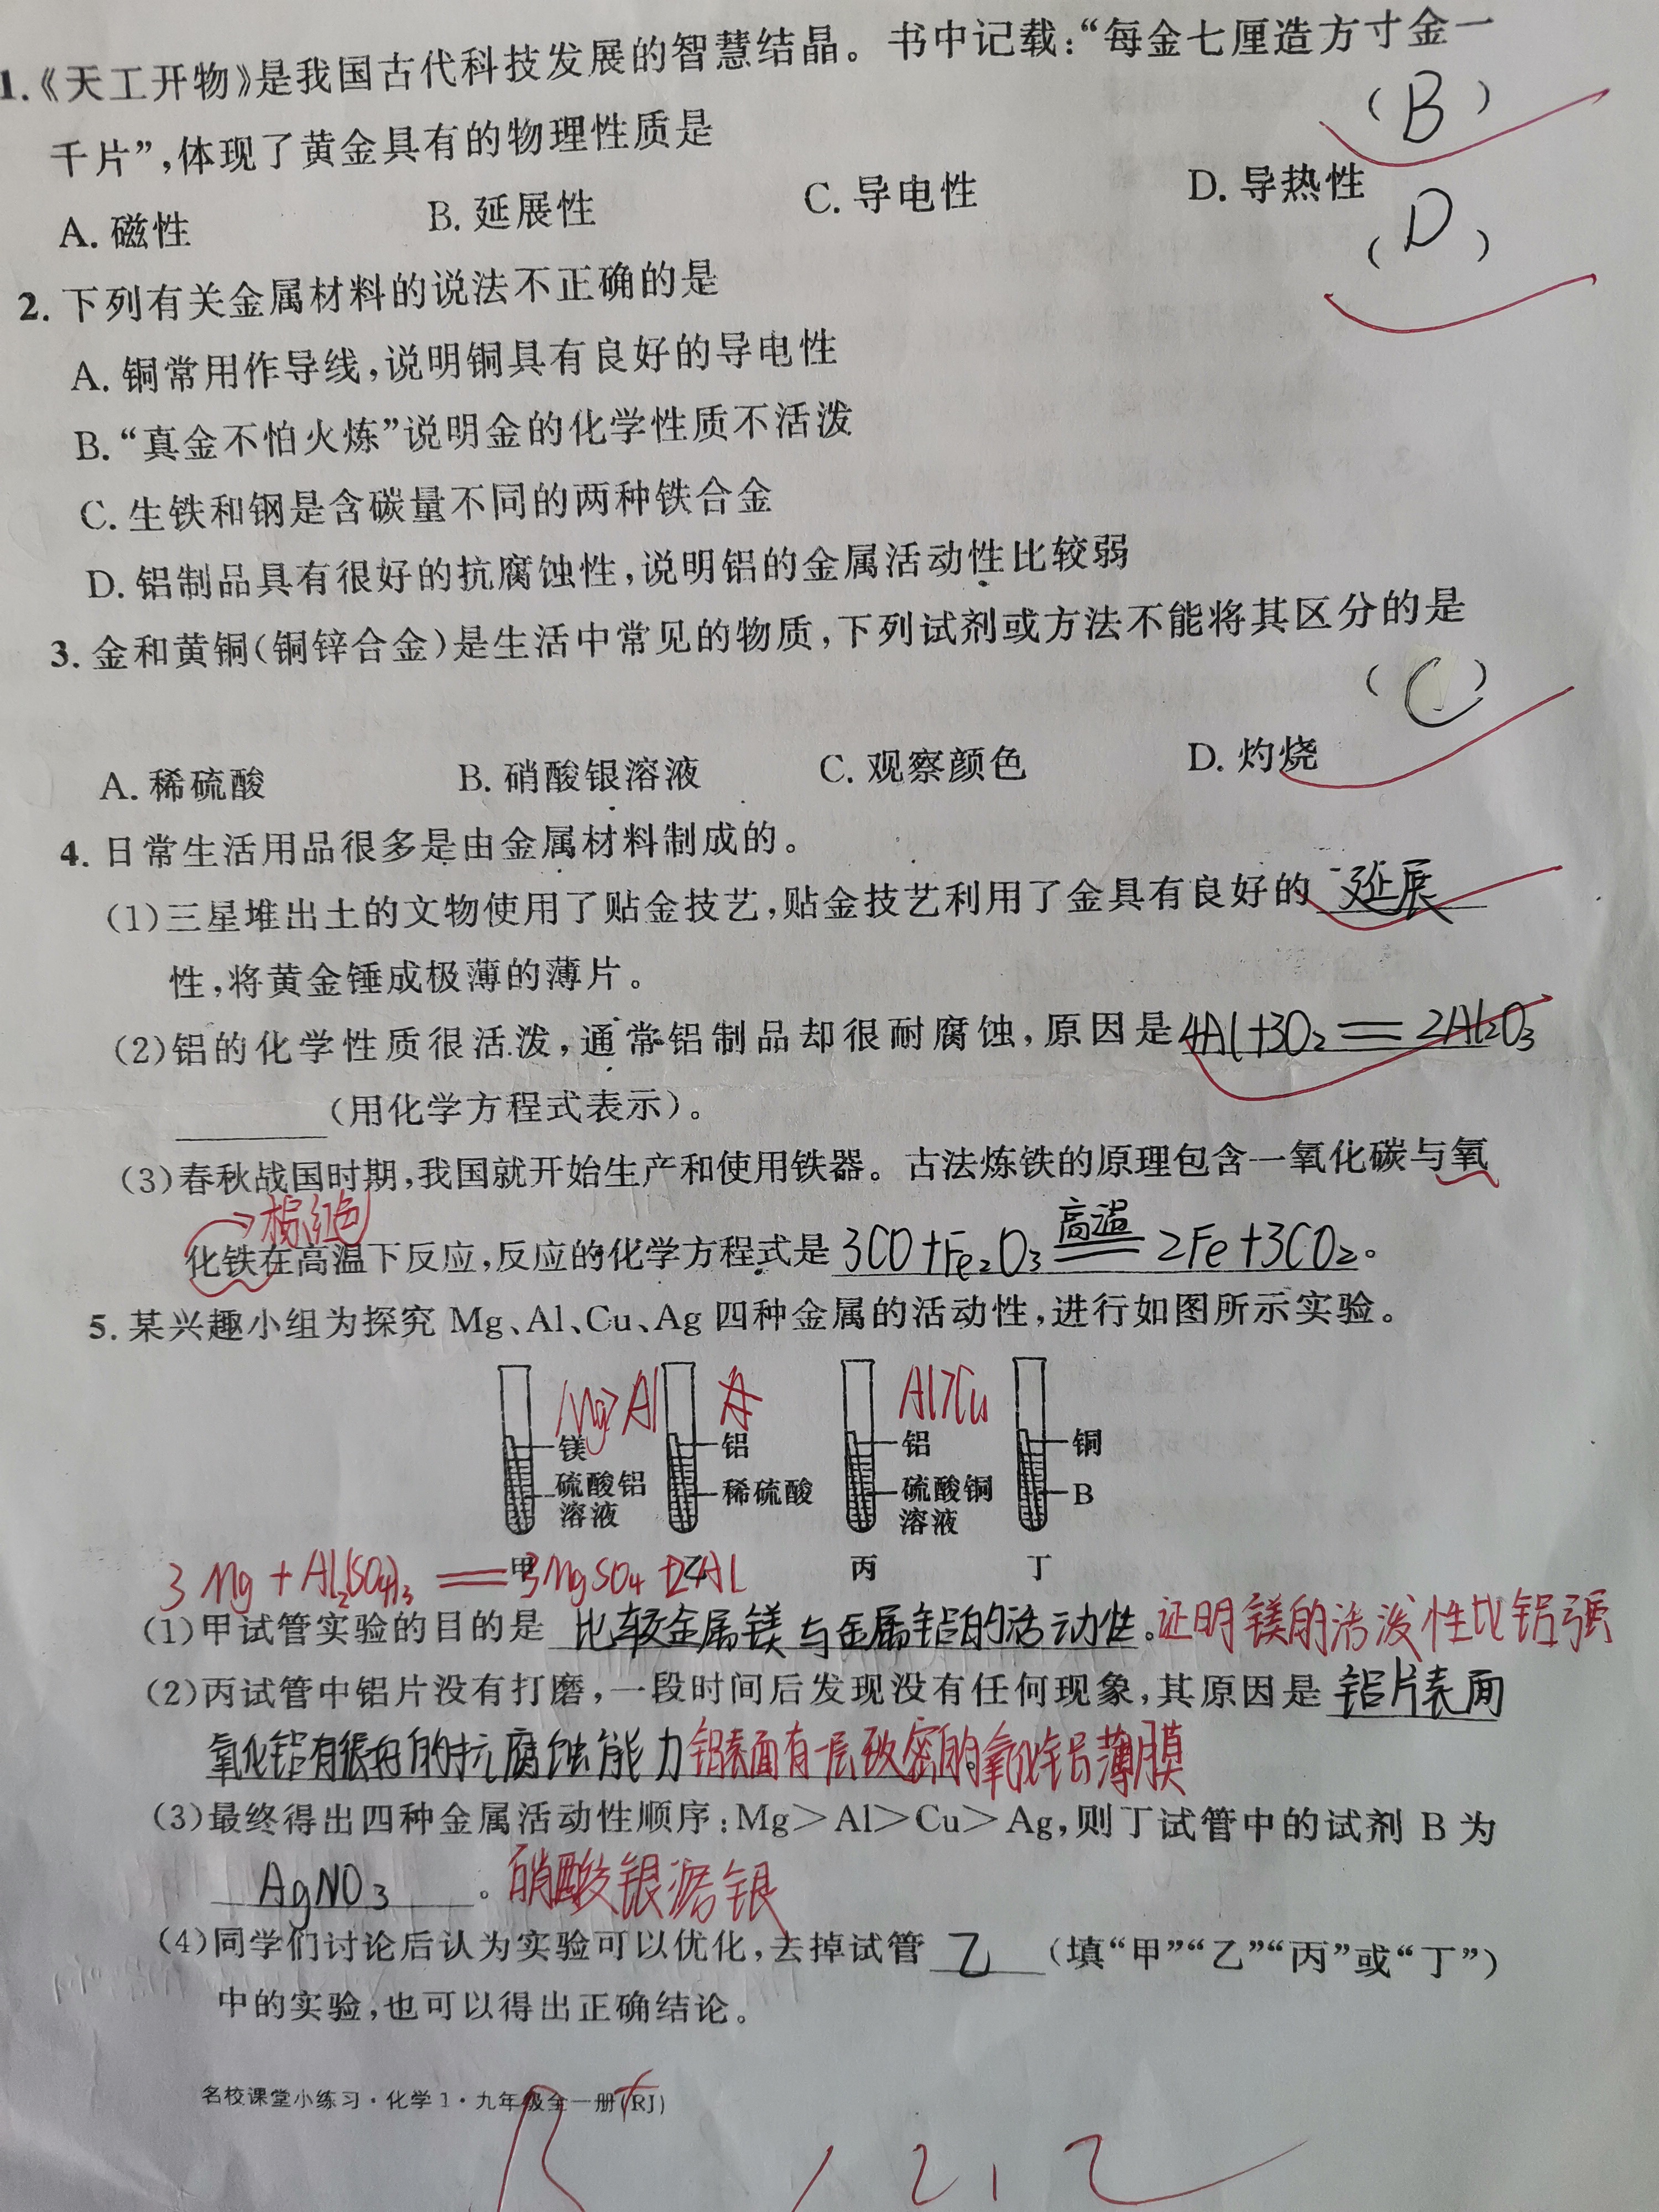 1.《天工开物》是我国古代科技发展的智慧结晶。书中记载:“每金七厘造方寸金一
千片”,体现了黄金具有的物理性质是
(B)
A. 磁性 B. 延展性 C. 导电性 D. 导热性
2. 下列有关金属材料的说法不正确的是
(D)
A. 铜常用作导线,说明铜具有良好的导电性
B.“真金不怕火炼”说明金的化学性质不活泼
C. 生铁和钢是含碳量不同的两种铁合金
D. 铝制品具有很好的抗腐蚀性,说明铝的金属活动性比较弱
3. 金和黄铜(铜锌合金)是生活中常见的物质,下列试剂或方法不能将其区分的是
(C)
A. 稀硫酸 B. 硝酸银溶液 C. 观察颜色 D. 灼烧
4. 日常生活用品很多是由金属材料制成的。
(1)三星堆出土的文物使用了贴金技艺,贴金技艺利用了金具有良好的 延展
性,将黄金锤成极薄的薄片。
(2)铝的化学性质很活泼,通常铝制品却很耐腐蚀,原因是 4Al+3O₂══2Al₂O₃
(用化学方程式表示)。
(3)春秋战国时期,我国就开始生产和使用铁器。古法炼铁的原理包含一氧化碳与氧
棕红色
高温
化铁在高温下反应,反应的化学方程式是 3CO+Fe₂O₃══2Fe+3CO₂。
5. 某兴趣小组为探究 Mg、Al、Cu、Ag 四种金属的活动性,进行如图所示实验。
Mg>Al Al>Cu
镁 铝 铝 铜
硫酸铝 稀硫酸 硫酸铜 B
溶液 溶液
甲 乙 丙 丁
3Mg+Al₂(SO₄)₃══3MgSO₄+2Al
(1)甲试管实验的目的是 比较金属镁与金属铝的活动性。证明镁的活泼性比铝强
(2)丙试管中铝片没有打磨,一段时间后发现没有任何现象,其原因是 铝片表面
氧化铝有很好的抗腐蚀能力 铝表面有一层致密的氧化铝薄膜
(3)最终得出四种金属活动性顺序:Mg>Al>Cu>Ag,则丁试管中的试剂 B 为
AgNO₃。硝酸银溶银
(4)同学们讨论后认为实验可以优化,去掉试管 乙 (填“甲”“乙”“丙”或“丁”)
中的实验,也可以得出正确结论。
名校课堂小练习·化学1·九年级全一册(RJ)